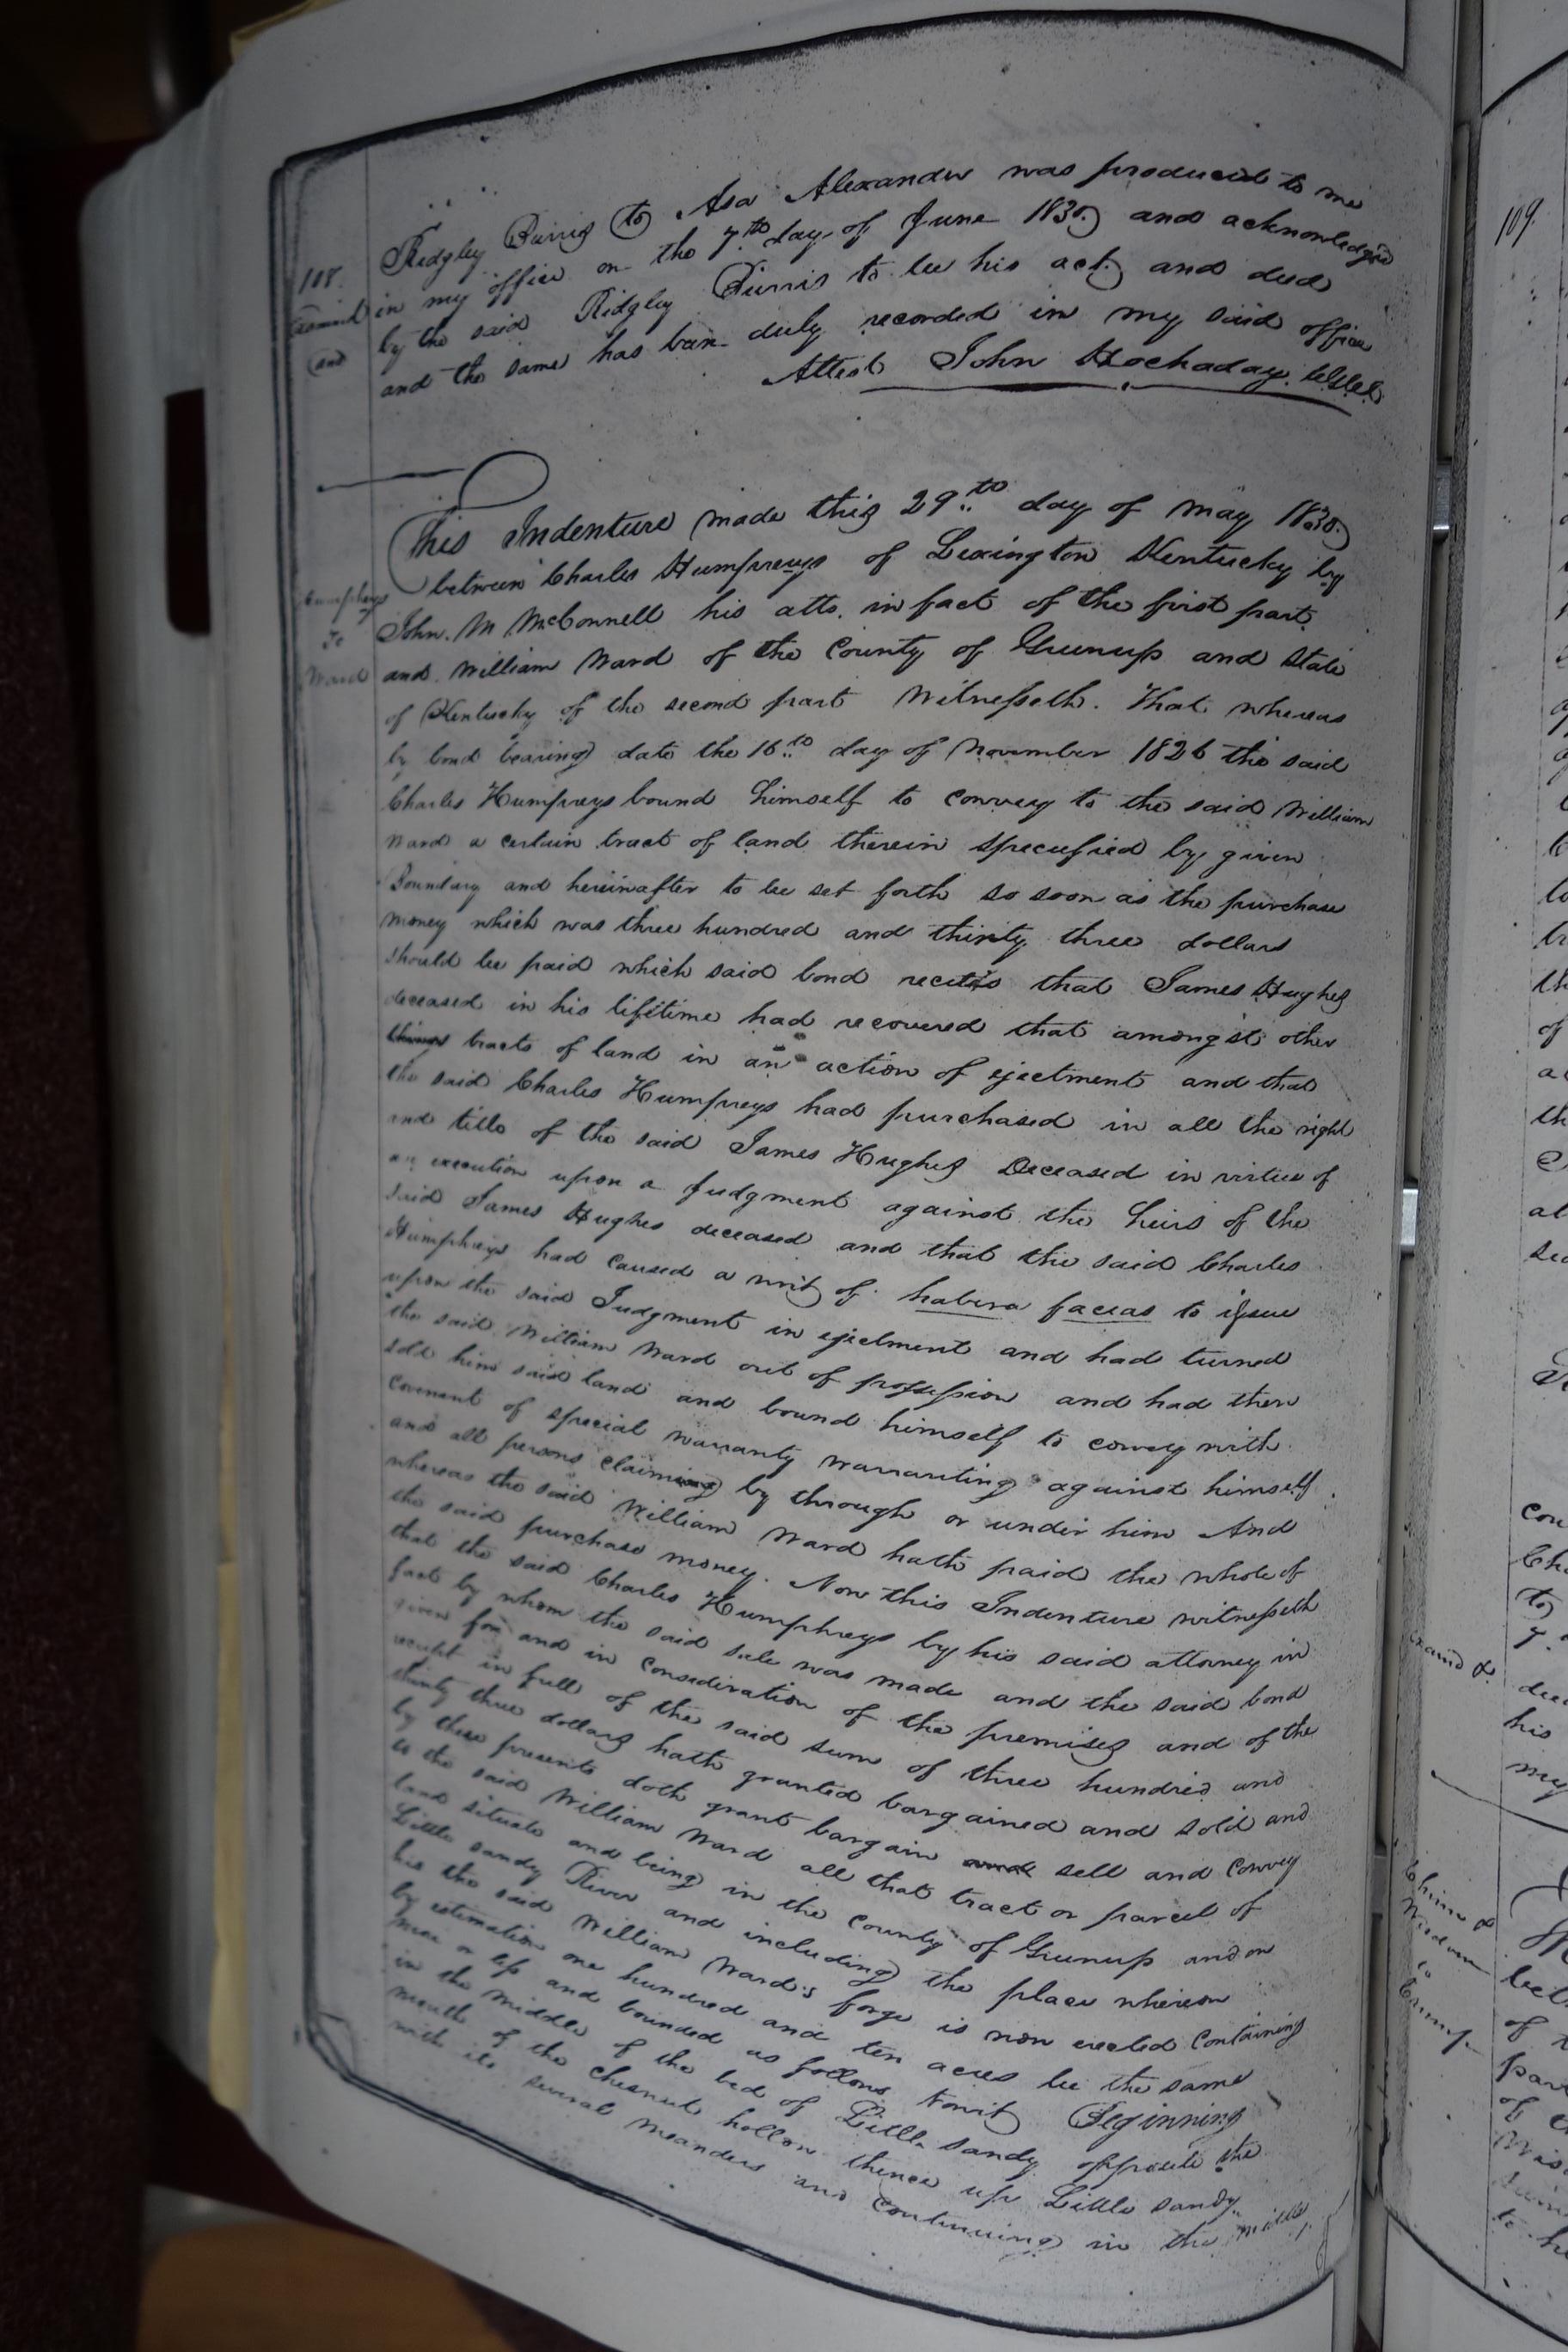 108.
Ridgley Burris to Asa Alexander was produced to me
in my office on the 7th day of June 1830 and acknowledged
by the said Ridgley Burris to be his act and deed
and the same has been duly recorded in my said office
Attest John Hockaday
This Indenture made this 29th day of May 1830
between Charles Humpreuys of Lexington Kentucky by
Humphreys
to
Ward
John. M McConnell his atto. in fact of the first part
and William Ward of the County of Greenup and State
of Kentucky of the second part Witnesseth. That whereas
by bond bearing date the 16th day of November 1826 the said
Charles Humpreys bound himself to convey to the said William
Ward a certain tract of land therein specified by given
Boundary and hereinafter to be set forth so soon as the purchase
money which was three hundred and thirty three dollars
should be paid which said bond recites that James Hughes
deceased in his lifetime had recovered that amongst other
tracts of land in an action of ejectment and that
the said Charles Humpreys had purchased in all the right
and title of the said James Hughes Deceased in virtue of
an execution upon a Judgment against the heirs of the
said James Hughes deceased and that the said Charles
Humphreys had caused a writ of habera facias to issue
upon the said Judgment in ejectment and had turned
the said William Ward out of possession and had then
sold him said land and bound himself to convey with
covenant of special warranty warranting against himself
and all persons claiming by through or under him And
whereas the said William Ward hath paid the whole of
the said purchase money. Now this Indenture witnesseth
that the said Charles Humphreys by his said attorney in
fact by whom the said sale was made and the said bond
given for and in consideration of the premises and of the
receipt in full of the said sum of three hundred and
thirty three dollars hath granted bargained and sold and
by these presents doth grant bargain and sell and convey
to the said William Ward all that tract or parcel of
land situate and being in the county of Greenup and on
Little Sandy River and including the place whereon
his the said William Ward's forge is now erected containing
by estimation one hundred and ten acres be the same
more or less and bounded as follows towit Beginning
in the middle of the bed of Little Sandy opposite the
mouth of the chesnut hollow thence up Little Sandy
with its several meanders and continuing in the middle
109.